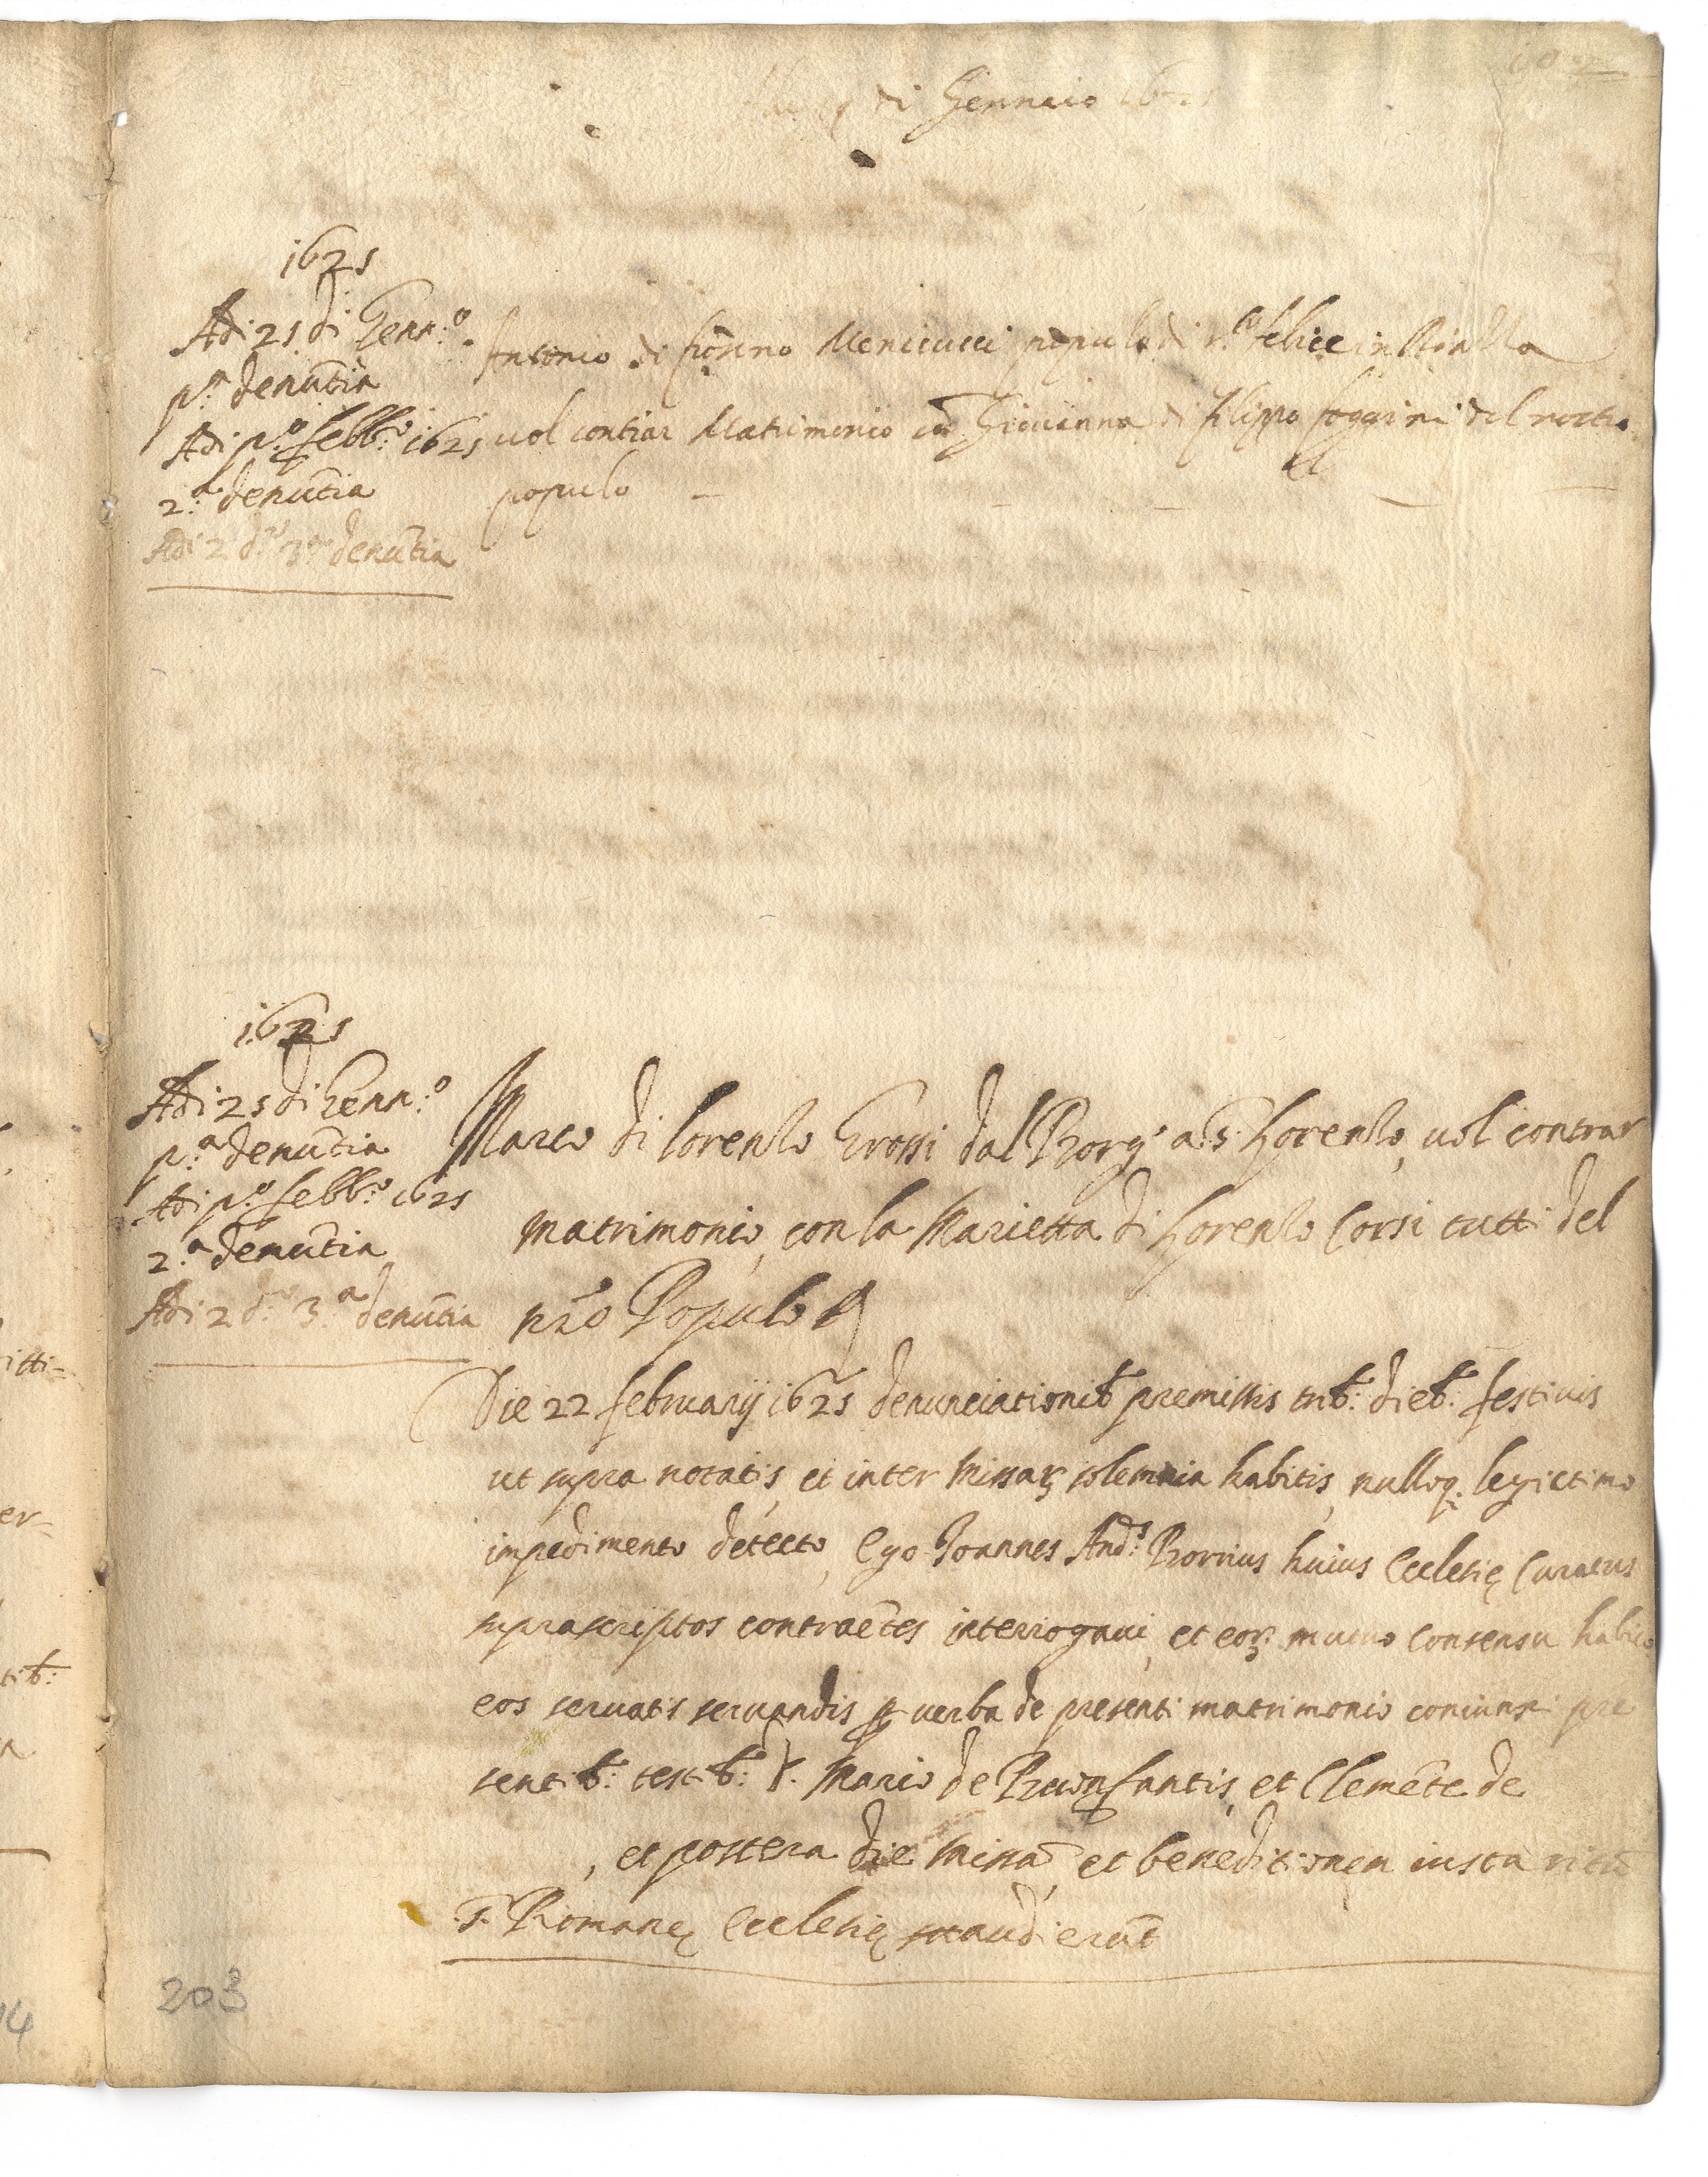 di Gennaio
1625
Adi 25 di Genn:º
p:ª denũtia
Adi p:º febb:º 1625
2:ª denũtia
Adi 2 dº 3ª denũtia
Antonio di fiorino Menicucci populo di s.to felice in
uol contrar Matrimonio cõ Giouanna di filippo foggini del nostro
populo
1625
Adi 25 di Genn:º
p:ª denũtia
Adi p:º febb:º 1625
2:ª denũtia
Adi 2 dº 3:ª denũtia
Marco di lorenzo Grossi dal Borgº a S. Lorenzo, uol contrar
matrimonio, con la Marietta di Lorenzo Corsi tutti del
nr̃o Populo
Die 22 februarij 1625 denunciationib premissis trib: dieb: festiuis
ut supra notatis, et inter Missarꝝ solemnia habitis, nulloq. legictimo
impedimento detecto, Ego Joannes And:s huius Ecclesię Curatus
suprascriptos contraẽtes interrogaui, et eorꝝ mutuo consensu habito
eos seruatis seruandis ꝑ uerba de presenti matrimonio coniunxi pre
sentib: testib: D. Mario de Buonfantis, et Clemẽte de
, et postera die Missã, et beneditionem iusta ritũ
S. Romanę Ecclesię audierũt
203